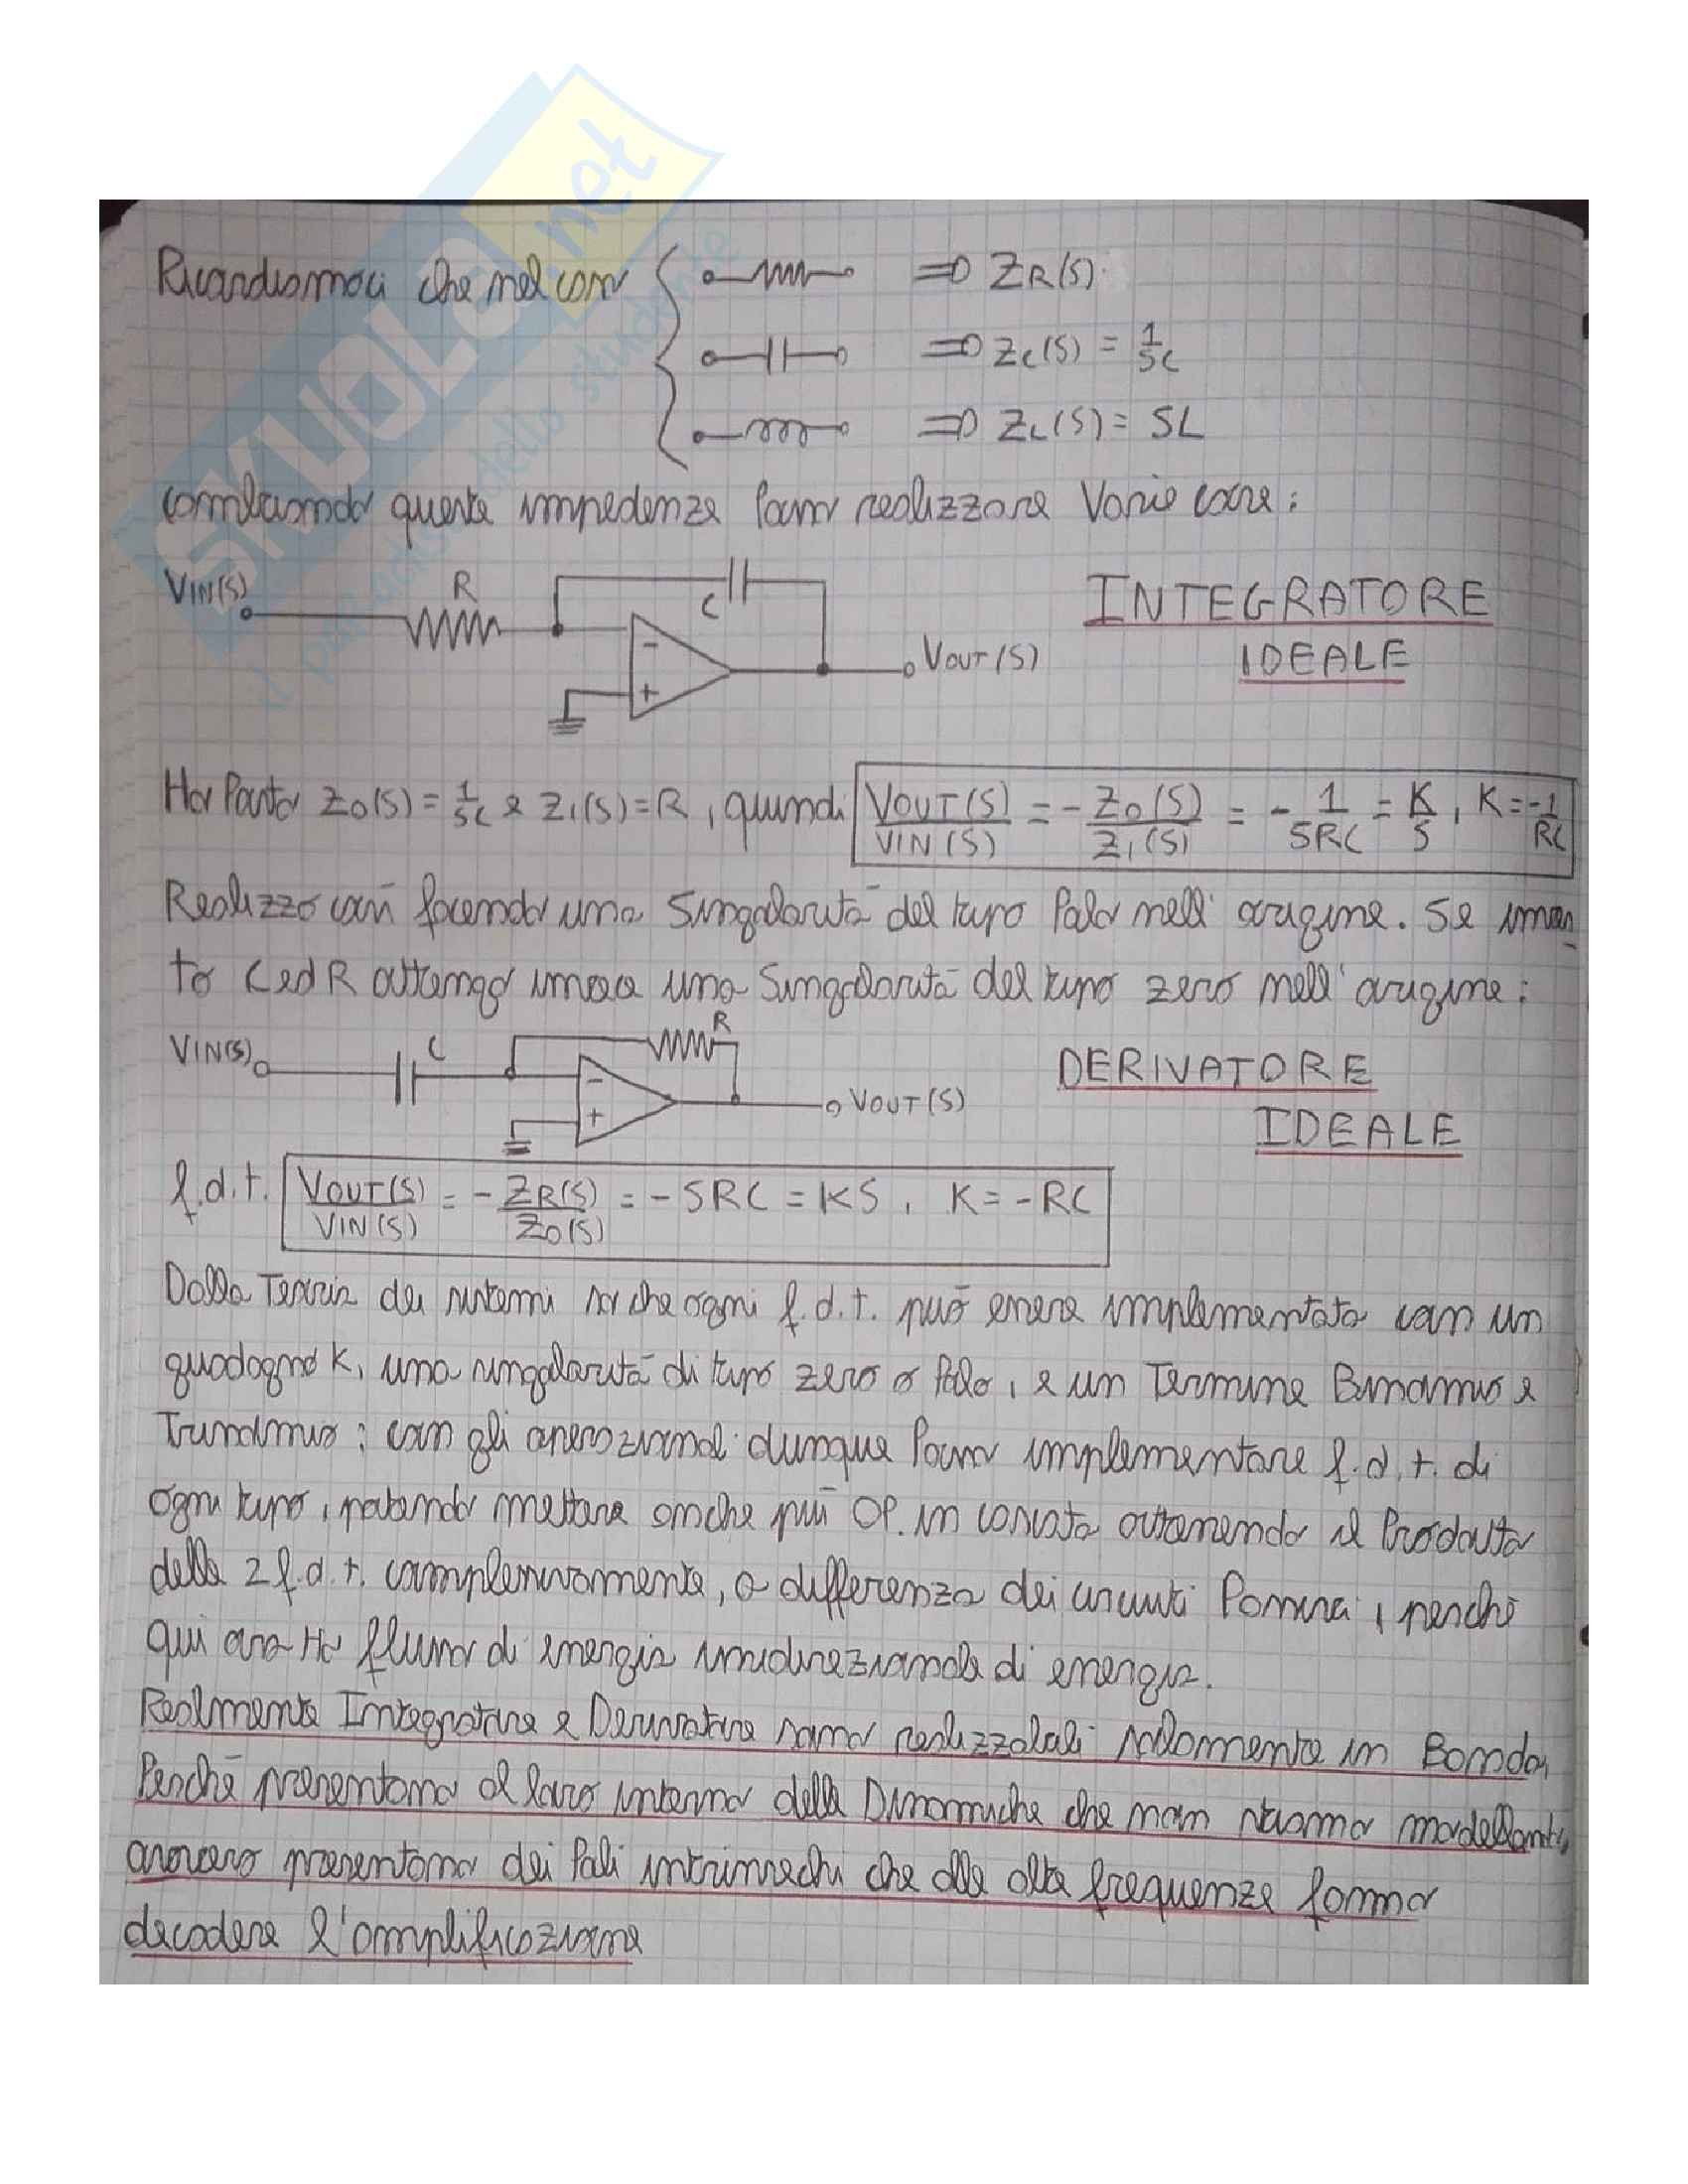 SKUOLA.net
il paradiso dello studente
Ricordiamoci che nel caso ⇒ ZR(S)
⇒ ZC(S) = 1/SC
⇒ ZL(S) = SL
combinando queste impedenze posso realizzare varie cose:
VIN(S) R C
INTEGRATORE
IDEALE
- + VOUT(S)
Ho Posto Z0(S) = 1/SC e Z1(S) = R, quindi VOUT(S)/VIN(S) = - Z0(S)/Z1(S) = - 1/SRC = K/S, K = -1/RC
Realizzo così facendo una Singolarità del tipo Polo nell'origine. Se inver_
to C ed R ottengo invece una Singolarità del tipo zero nell'origine:
VIN(S) C R
- + VOUT(S)
DERIVATORE
IDEALE
f.d.t. VOUT(S)/VIN(S) = - ZR(S)/Z0(S) = - SRC = KS, K = - RC
Dalla Teoria dei sistemi so che ogni f.d.t. può essere implementata con un
guadagno K, una singolarità di tipo zero o Polo, e un Termine Binomio e
Trinomio; con gli operazionali dunque Posso implementare f.d.t. di
ogni tipo, potendo mettere anche più OP. in cascata ottenendo il Prodotto
delle 2 f.d.t. complessivamente, a differenza dei circuiti Passivi, perché
qui ora Ho flusso di energia unidirezionale di energia.
Realmente Integratore e Derivatore sono realizzabili solamente in Banda,
Perchè presentano al loro interno delle Dinamiche che non stiamo modellando,
ovvero presentano dei Poli intrinsechi che alle alte frequenze fanno
decadere l'amplificazione